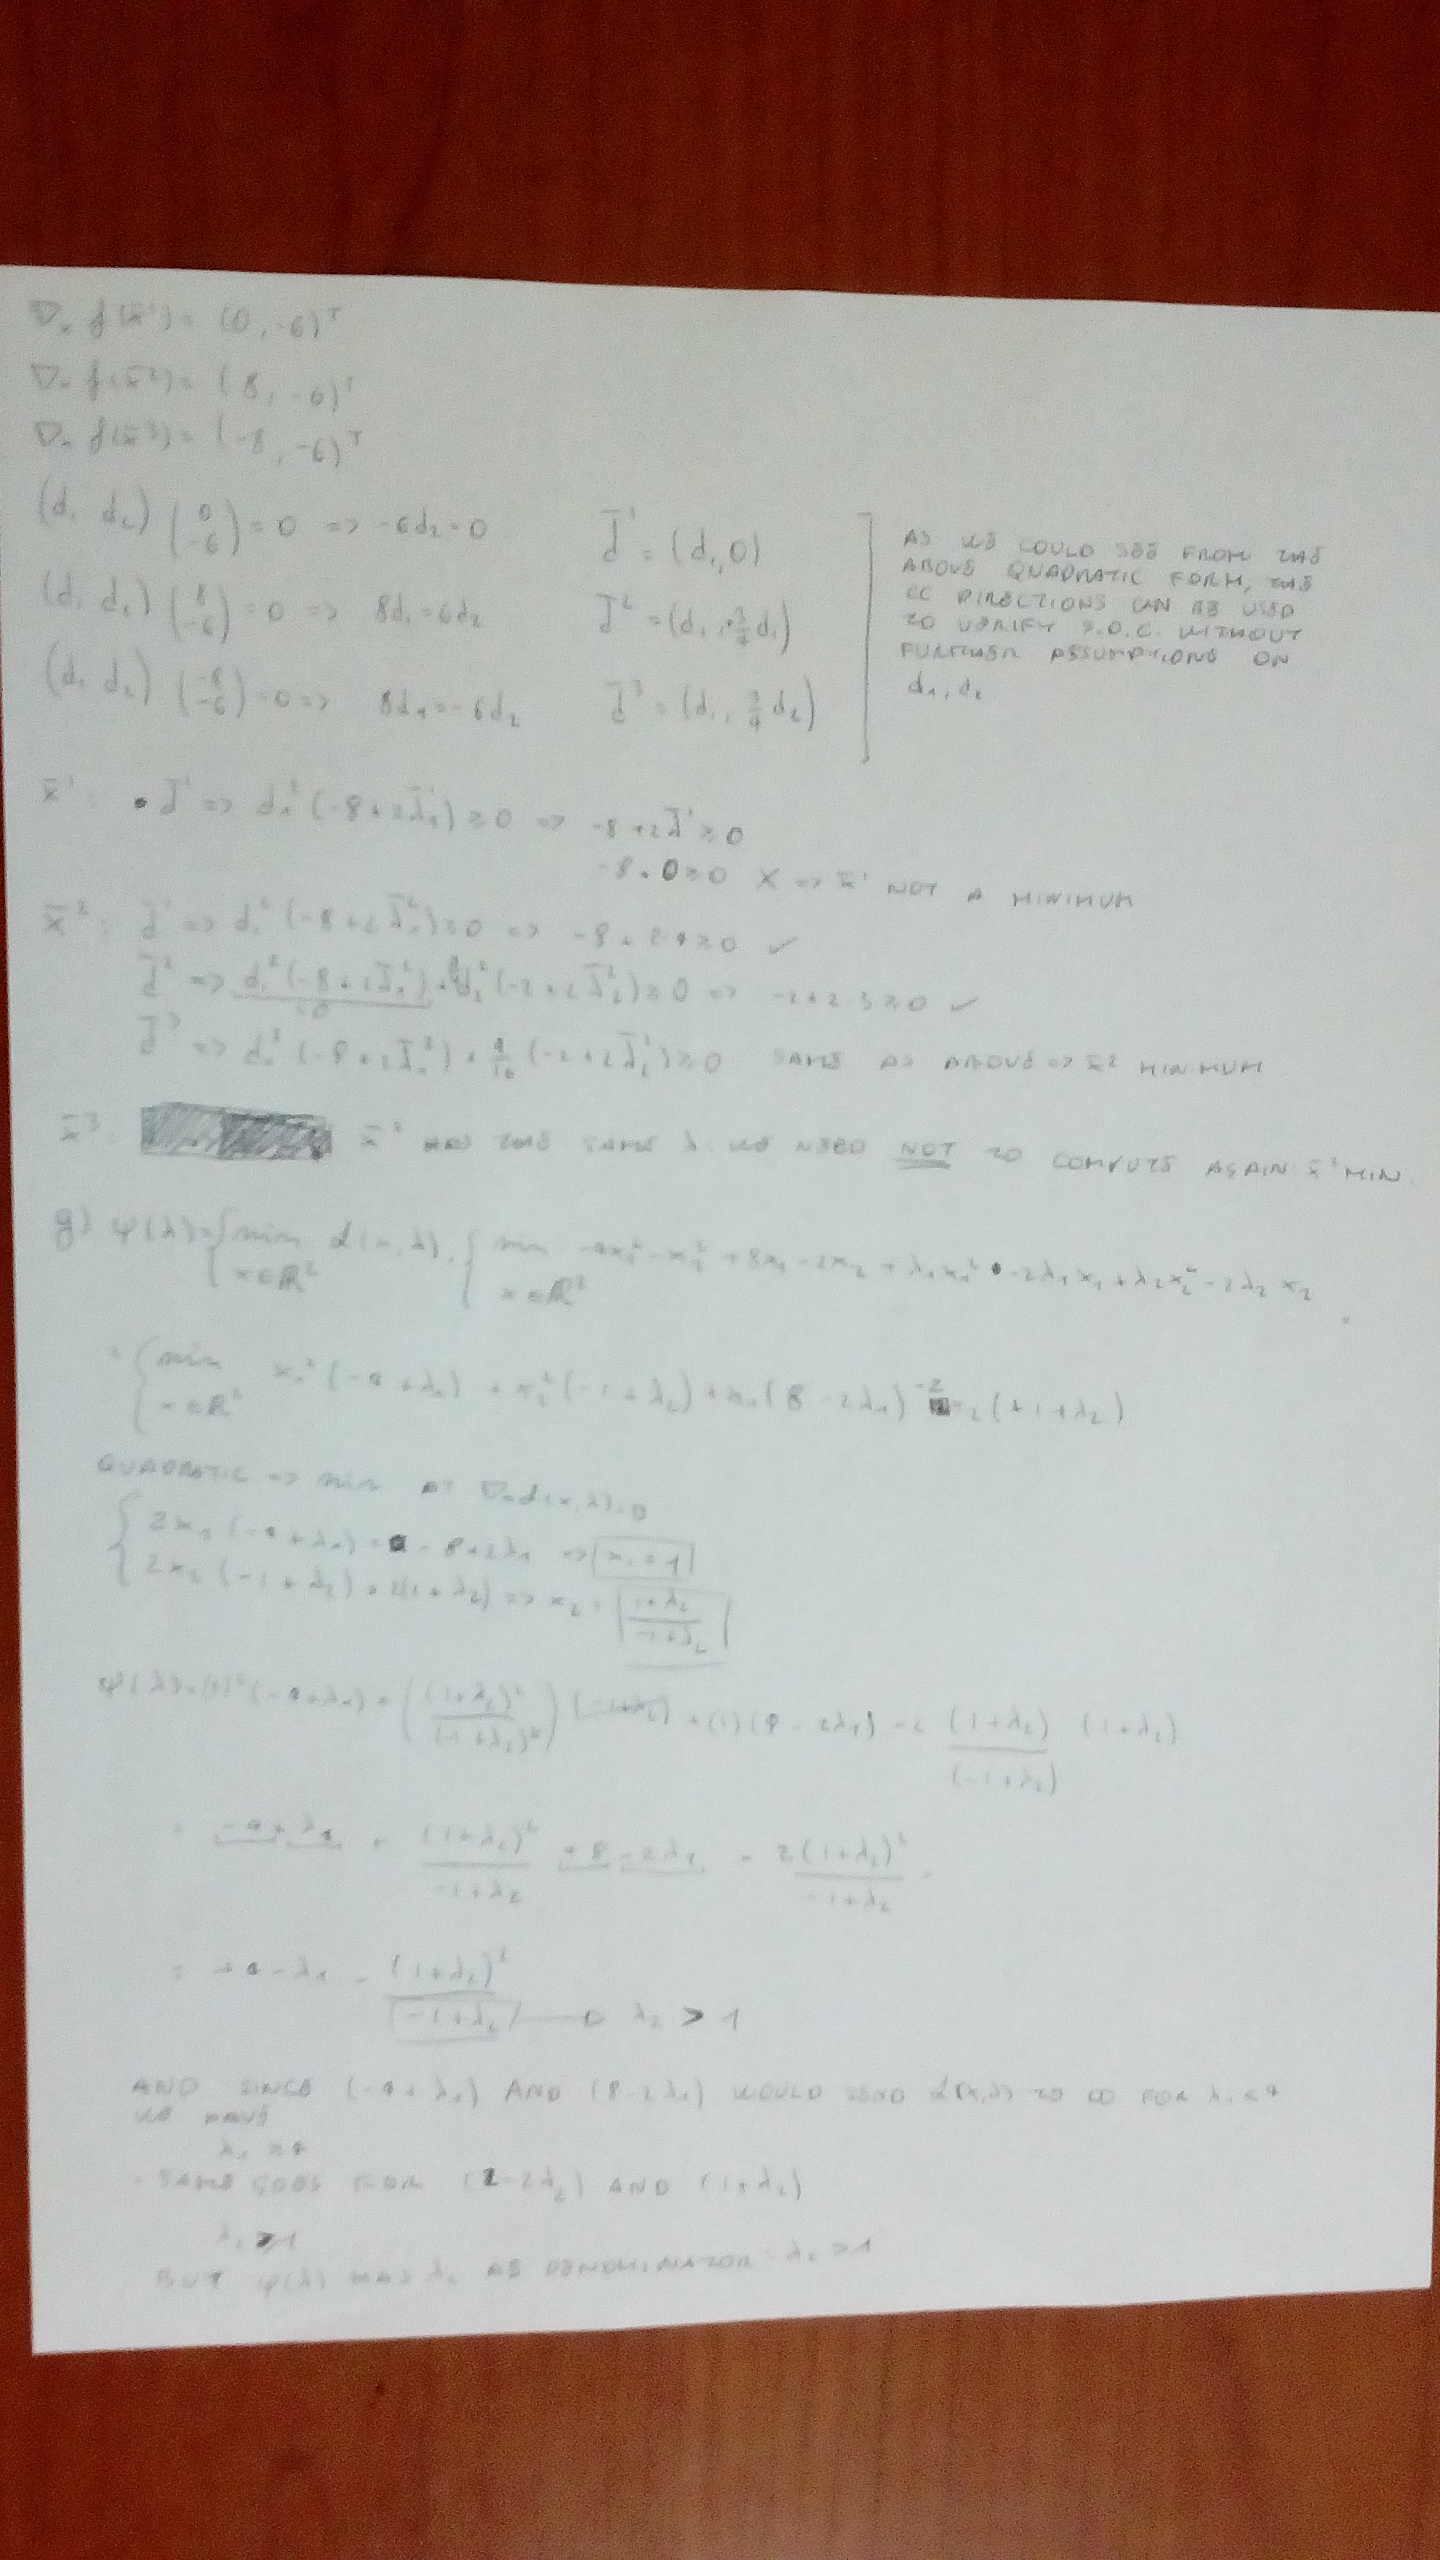 ∇ₓ f(x̄¹) = (0, -6)ᵀ
∇ₓ f(x̄²) = (8, -6)ᵀ
∇ₓ f(x̄³) = (-8, -6)ᵀ
(d₁ d₂) (0 -6) = 0 => -6d₂ = 0    d̄¹ = (d₁, 0)
(d₁ d₂) (8 -6) = 0 => 8d₁ = 6d₂    d̄² = (d₁, +3/4 d₁)
(d₁ d₂) (-8 -6) = 0 => 8d₁ = -6d₂    d̄³ = (d₁, 3/4 d₂)
AS WE COULD SEE FROM THE
ABOVE QUADRATIC FORM, THE
CC DIRECTIONS CAN BE USED
TO VERIFY S.O.C. WITHOUT
FURTHER ASSUMPTIONS ON
d₁, d₂
x̄¹: d̄¹ => d₁² (-8 + 2λ̄₁¹) ≥ 0 => -8 + 2λ̄¹ ≥ 0
-8 + 0 ≥ 0 X => x̄¹ NOT A MINIMUM
x̄²: d̄¹ => d₁² (-8 + 2λ̄₁²) ≥ 0 => -8 + 2·4 ≥ 0 ✓
d̄² => d₁² (-8 + 2λ̄₁²) + d₂² (-2 + 2λ̄₂²) ≥ 0 => -2 + 2·3 ≥ 0 ✓
=0
d̄³ => d₁² (-8 + 2λ̄₁²) + 9/16 (-2 + 2λ̄₂¹) ≥ 0 SAME AS ABOVE => x̄² MINIMUM
x̄³: x̄³ HAS THE SAME λ. WE NEED NOT TO COMPUTE AGAIN: x̄³ MIN.
g) ψ(λ) = { min L(x, λ) = { min -4x₁² - x₂² + 8x₁ - 2x₂ + λ₁x₁² - 2λ₁x₁ + λ₂x₂² - 2λ₂x₂
x ∈ ℝ²    x ∈ ℝ²
= { min x₁² (-4 + λ₁) + x₂² (-1 + λ₂) + x₁ (8 - 2λ₁) -2 x₂ (+1 + λ₂)
x ∈ ℝ²
QUADRATIC => min AT ∇ₓL(x, λ) = 0
{ 2x₁ (-4 + λ₁) = -8 + 2λ₁ => x₁ = 1
2x₂ (-1 + λ₂) = 2(1 + λ₂) => x₂ = (1 + λ₂)/(-1 + λ₂)
ψ(λ) = (1)² (-4 + λ₁) + ((1 + λ₂)²/(-1 + λ₂)²) (-1 + λ₂) + (1)(8 - 2λ₁) - 2 (1 + λ₂)/(-1 + λ₂) (1 + λ₂)
= -4 + λ₁ + (1 + λ₂)²/(-1 + λ₂) + 8 - 2λ₁ - 2(1 + λ₂)²/(-1 + λ₂)
= +4 - λ₁ - (1 + λ₂)²/(-1 + λ₂) → λ₂ > 1
AND SINCE (-4 + λ₁) AND (8 - 2λ₁) WOULD SEND L(x, λ) TO ∞ FOR λ₁ < 4
WE HAVE
λ₁ ≥ 4
SAME GOES FOR (2 - 2λ₂) AND (1 + λ₂)
λ₂ ≥ 1
BUT ψ(λ) HAS λ₂ AS DENOMINATOR: λ₂ > 1